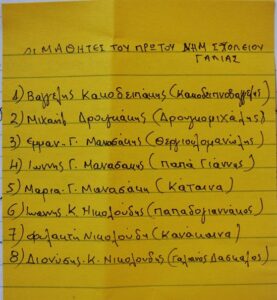 οι ΜΑΘΗΤΕΣ ΤΟΥ ΠΡΩΤΟΥ ΔΗΜ ΣΧΟΛΕΙΟΥ
ΓΑΛΙΑΣ
1) Βαγγελης Κακοδειπάκης (Κακοδειπνοβαγγέλης)
2) Μιχαήλ Δρουγκάκης (Δρουγκομιχάλης)
3) Εμμαν. Γ. Μανασάκη (Θεργιουλομανώλης)
4) Ιωννης Γ. Μανασάκης (παπα Γιάννης)
5) Μαρια-Γ. Μανασάκη (Κατσινα)
6) Ιωαννης Κ. Νικολούδης (παπαδογιαννάκος)
7) Φυλακτή Νικολούδη (Κανάκαινα)
8) Διονύσης-Κ. Νικολούδης (Γαλιανός Δασκαλος)